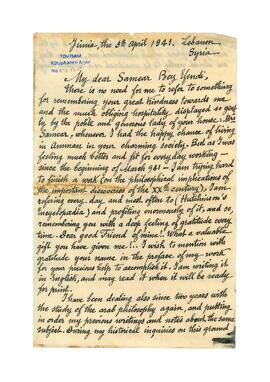 Jinia, the 5th April 1941. Lebanon,
Syria.
TDVİSAM
Kütüphanesi Arşivi
No
My dear Samear Bey Yendi,
there is no need for me to refer to something
for remembering your great kindness towards me
and the much obliging hospitality displayed so
by by the polite and generous lady of your home, Mrs
Samear, whenever I had the happy chance of living
in Amman in your charming society. But as I was
feeling much better and fit for everyday working —
since the beginning of March 941 — I am trying hard
to finish a work (on the philosophical implications of
the important discoveries of the XXth century), I am
refering every day and most often to (Hutchinson's
Encyclopædia) and profiting enormously of it, and so
remembering you with a deep feeling of gratitude every
time. Dear good Friend of mine!! What a valuable
gift you have given me!!.. I wish to mention with
gratitude your name in the preface of my work
for your previous help to accomplish it. I am writing it
in English, and may read it when it will be ready
for print.
I have been dealing also since two years with
the study of the arab philosophy again, and putting
in order my previous writings and notes about the same
subject. During my historical inquiries on this ground